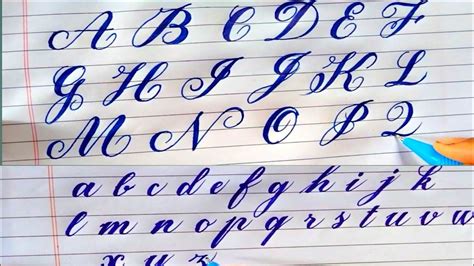 A B C D E F
G H I J K L
M N O P Q
a b c d e f g h i j k
l m n o p q r s t u v w
x y z